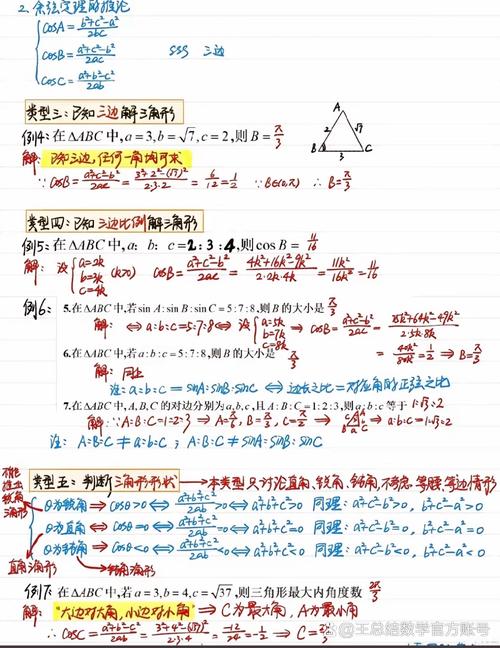 2. 余弦定理的推论
cosA = (b²+c²-a²)/2bc
cosB = (a²+c²-b²)/2ac    SSS 三边
cosC = (a²+b²-c²)/2ab
类型三:已知三边解三角形
例4:在△ABC中,a=3,b=√7,c=2,则B= π/3
解:已知三边,任何一角均可求
∵ cosB = (a²+c²-b²)/2ac = (3²+2²-(√7)²)/2·3·2 = 6/12 = 1/2 ∵ B∈(0,π) ∴ B=π/3
A
2 √7
B 3 C
类型四:已知三边比例解三角形
例5:在△ABC中,a:b:c=2:3:4,则cosB= 11/16
解:设 { a=2k b=3k c=4k (k>0) cosB = (a²+c²-b²)/2ac = (4k²+16k²-9k²)/2·2k·4k = 11k²/16k² = 11/16
例6: 5.在△ABC中,若sinA:sinB:sinC=5:7:8,则B的大小是 π/3
解: ⇔ a:b:c=5:7:8 ⇔ 设 { a=5k b=7k c=8k ⇒ cosB = (a²+c²-b²)/2ac = (25k²+64k²-49k²)/2·5k·8k
= 40k²/80k² = 1/2 ⇒ B=π/3
6.在△ABC中,若a:b:c=5:7:8,则B的大小是 π/3
解:同上
注:a:b:c = sinA:sinB:sinC ⇔ 边长之比=对应角的正弦之比
7.在△ABC中,A,B,C的对边分别为a,b,c,且A:B:C=1:2:3,则a:b:c等于 1:√3:2
解:∵ A:B:C=1:2:3 ⇒ A=π/6, B=π/3, C=π/2 ⇒ a:b:c=1:√3:2
注:A:B:C ≠ a:b:c ; A:B:C ≠ sinA:sinB:sinC
类型五:判断三角形形状 → 本类型只讨论直角、锐角、钝角,不考虑等腰、等边情形
不能推出锐角三角形
θ为锐角 ⇒ cosθ>0 ⇔ (a²+b²-c²)/2ab >0 ⇔ a²+b²-c²>0 同理:a²+c²-b²>0, b²+c²-a²>0
θ为直角 ⇔ cosθ=0 ⇔ (a²+b²-c²)/2ab =0 ⇔ a²+b²-c²=0 同理:a²+c²-b²=0, b²+c²-a²=0
θ为钝角 ⇒ cosθ<0 ⇔ (a²+b²-c²)/2ab <0 ⇔ a²+b²-c²<0 同理:a²+c²-b²<0, b²+c²-a²<0
直角三角形 钝角三角形
例7:在△ABC中,若a=3,b=4,c=√37,则三角形最大内角度数 2π/3
解:"大边对大角,小边对小角" ⇒ C为最大角,A为最小角
∴ cosC = (a²+b²-c²)/2ab = (3²+4²-(√37)²)/2·3·4 = -12/24 = -1/2 ⇒ C=2π/3
@王总结数学官方账号